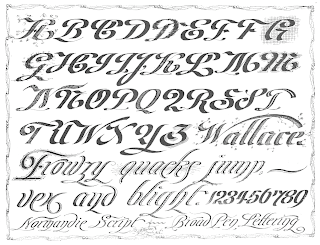 A B C D D E F F G
G H I I J K L M M
N N O P Q R S T
T U W X Y Z Wallace.
Frowzy quacks jump ~
vex and blight. 123456789
Normandie Script — Broad Pen Lettering